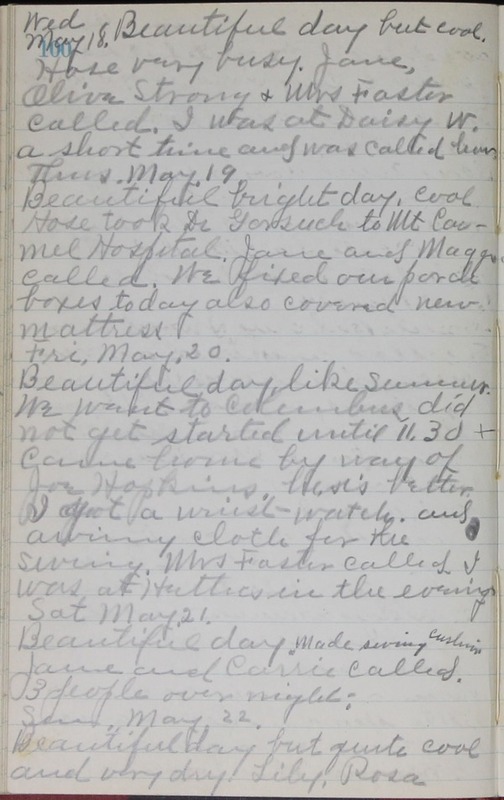 Wed
May 18, Beautiful day but cool.
100
Hose very busy. Jane,
Olive Strong & Mrs Foster
called. I was at Daisy W.
a short time and was called home
Thus. May. 19
Beautiful bright day, cool
Hose took Dr Gorsuch to Mt Car-
mel Hospital. Jane and Maggie
called. We fixed our porch
boxes today also covered new
mattress
Fri, May, 20.
Beautiful day, like Summer.
We went to Columbus did
not get started until 11.30 +
Came home by way of
Joe Hopkins, he is better
I got a wrist-watch. and
awning cloth for the
swing. Mrs Foster called I
was at Hatties in the evening
Sat May, 21.
Beautiful day, Made swing cushion
Jane and Carrie called.
13 people over night.
Sun. May 22.
Beautiful day but quite cool
and very dry. Lily, Rosa